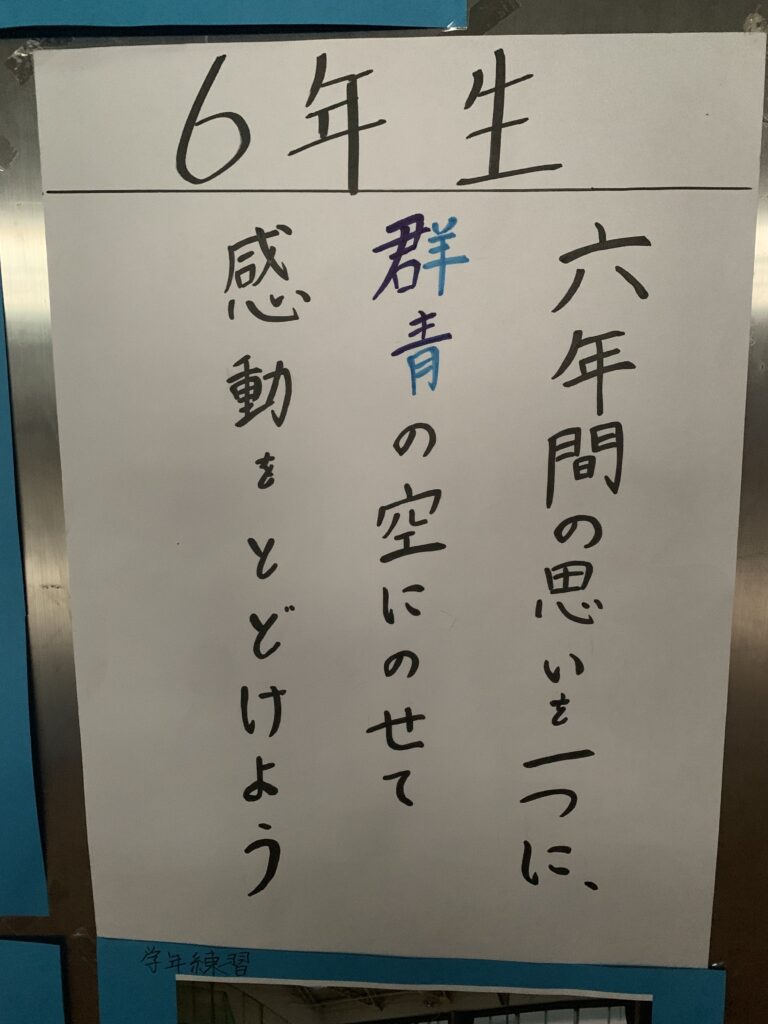 6年生
六年間の思いを一つに、
群青の空にのせて
感動をとどけよう
学年練習